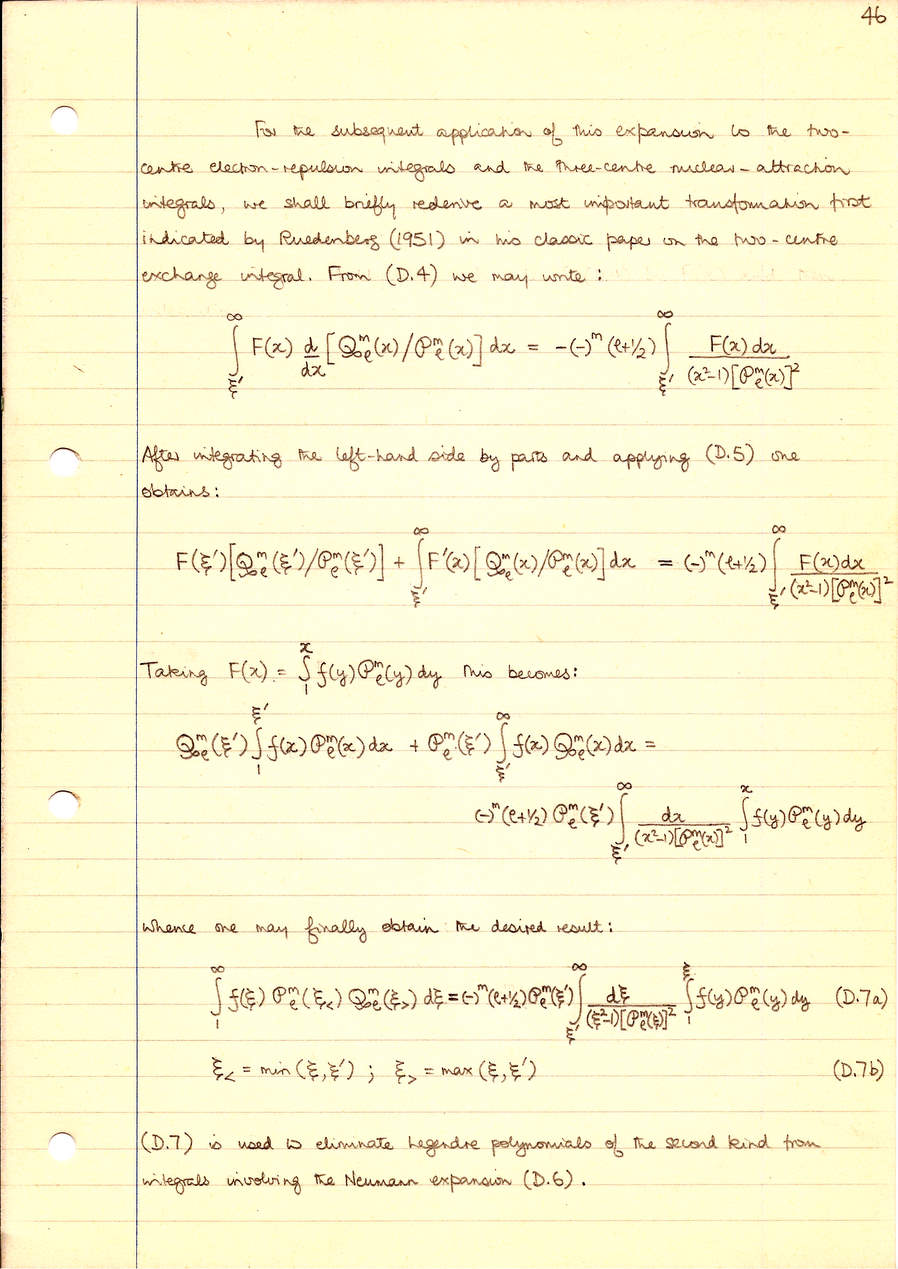 46
For the subsequent application of this expansion to the two-
centre electron-repulsion integrals and the three-centre nuclear-attraction
integrals, we shall briefly rederive a most important transformation first
indicated by Ruedenberg (1951) in his classic paper on the two-centre
exchange integral. From (D.4) we may write:
∫_{ξ′}^{∞} F(x) d/dx [𝒬_ℓ^m(x)/𝒫_ℓ^m(x)] dx = -(-)^m (ℓ+1/2) ∫_{ξ′}^{∞} F(x) dx / (x²-1)[𝒫_ℓ^m(x)]²
After integrating the left-hand side by parts and applying (D.5) one
obtains:
F(ξ′)[𝒬_ℓ^m(ξ′)/𝒫_ℓ^m(ξ′)] + ∫_{ξ′}^{∞} F′(x) [𝒬_ℓ^m(x)/𝒫_ℓ^m(x)] dx = (-)^m (ℓ+1/2) ∫_{ξ′}^{∞} F(x) dx / (x²-1)[𝒫_ℓ^m(x)]²
Taking F(x) = ∫_1^x f(y) 𝒫_ℓ^m(y) dy this becomes:
𝒬_ℓ^m(ξ′) ∫_1^{ξ′} f(x) 𝒫_ℓ^m(x) dx + 𝒫_ℓ^m(ξ′) ∫_{ξ′}^{∞} f(x) 𝒬_ℓ^m(x) dx =
(-)^m (ℓ+1/2) 𝒫_ℓ^m(ξ′) ∫_{ξ′}^{∞} dx / (x²-1)[𝒫_ℓ^m(x)]² ∫_1^x f(y) 𝒫_ℓ^m(y) dy
Whence one may finally obtain the desired result:
∫_1^{∞} f(ξ) 𝒫_ℓ^m(ξ_<) 𝒬_ℓ^m(ξ_>) dξ = (-)^m (ℓ+1/2) 𝒫_ℓ^m(ξ′) ∫_{ξ′}^{∞} dξ / (ξ²-1)[𝒫_ℓ^m(ξ)]² ∫_1^ξ f(y) 𝒫_ℓ^m(y) dy (D.7a)
ξ_< = min (ξ, ξ′) ; ξ_> = max (ξ, ξ′) (D.7b)
(D.7) is used to eliminate Legendre polynomials of the second kind from
integrals involving the Neumann expansion (D.6).